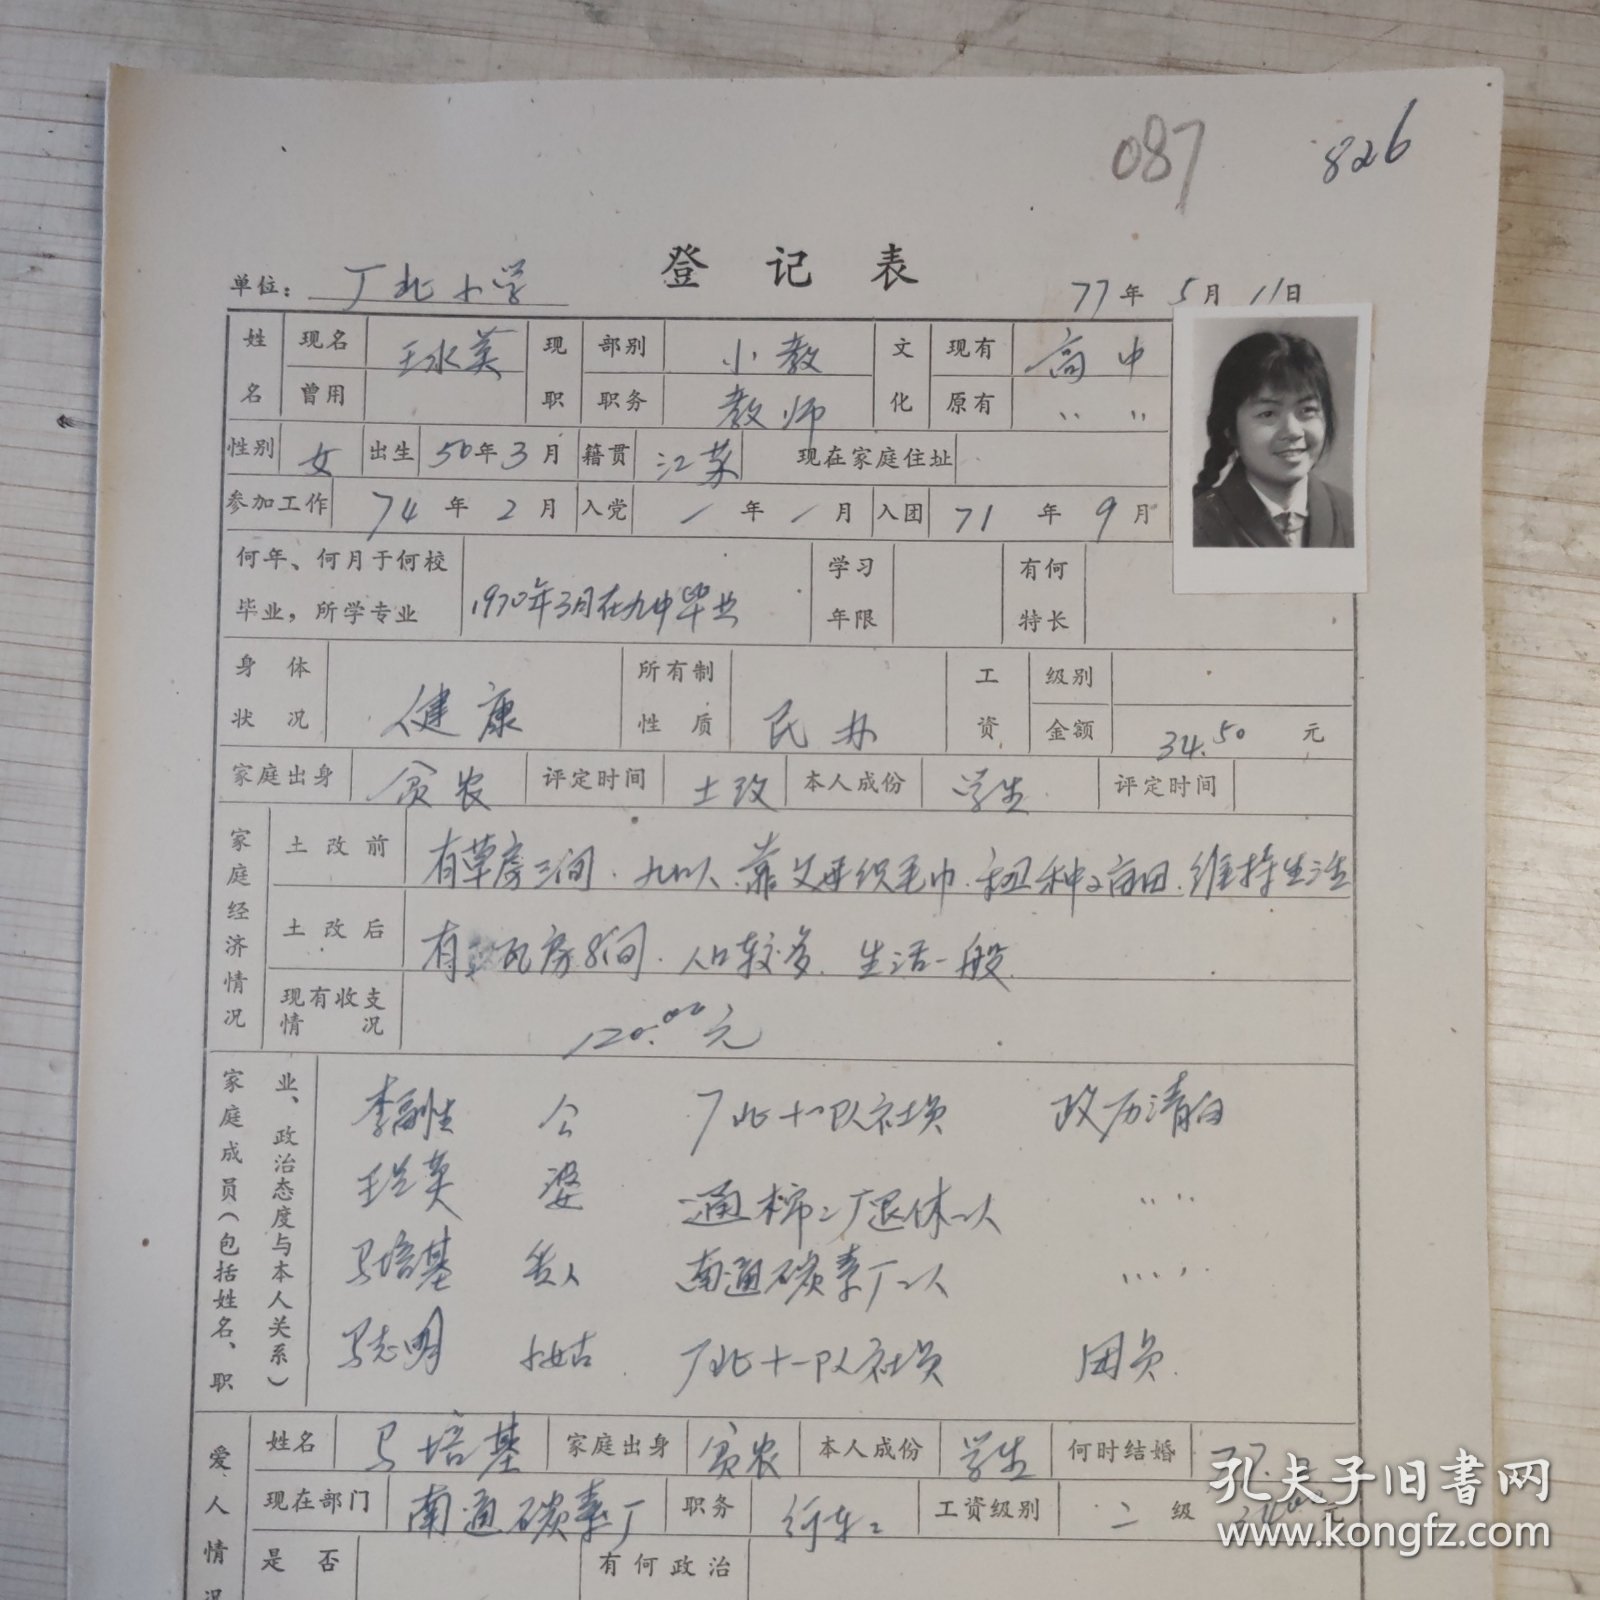 087 826
登记表
单位: 厂北小学 77年5月11日
姓名 现名 王水英 现职 部别 小教 文化 现有 高中
曾用 职务 教师 原有 〃 〃
性别 女 出生 50年3月 籍贯 现在家庭住址
参加工作 74年2月 入党 / 年 / 月 入团 71年9月
何年、何月于何校毕业,所学专业 1970年3月在九中毕业 学习年限 有何特长
身体状况 健康 所有制性质 民办 工资 级别
金额 34.50 元
家庭出身 贫农 评定时间 土改 本人成份 学生 评定时间
家庭经济情况 土改前 有草房三间.九口人.靠父母织毛巾.和种2亩田.维持生活
土改后 有瓦房8间.人口较多.生活一般.
现有收支情况 120.00元
家庭成员(包括姓名、职业、政治态度与本人关系)
公 厂北十一队社员 政历清白
王兰英 婆 通棉二厂退休工人 〃 〃
马培基 爱人 南通碳素厂工人 〃 〃
马志明 小姑 厂北十一队社员 团员.
爱人情况 姓名 马培基 家庭出身 贫农 本人成份 学生 何时结婚 77.
现在部门 南通碳素厂 职务 行车工 工资级别 二级 元
是否 有何政治
孔夫子旧书网
www.kongfz.com